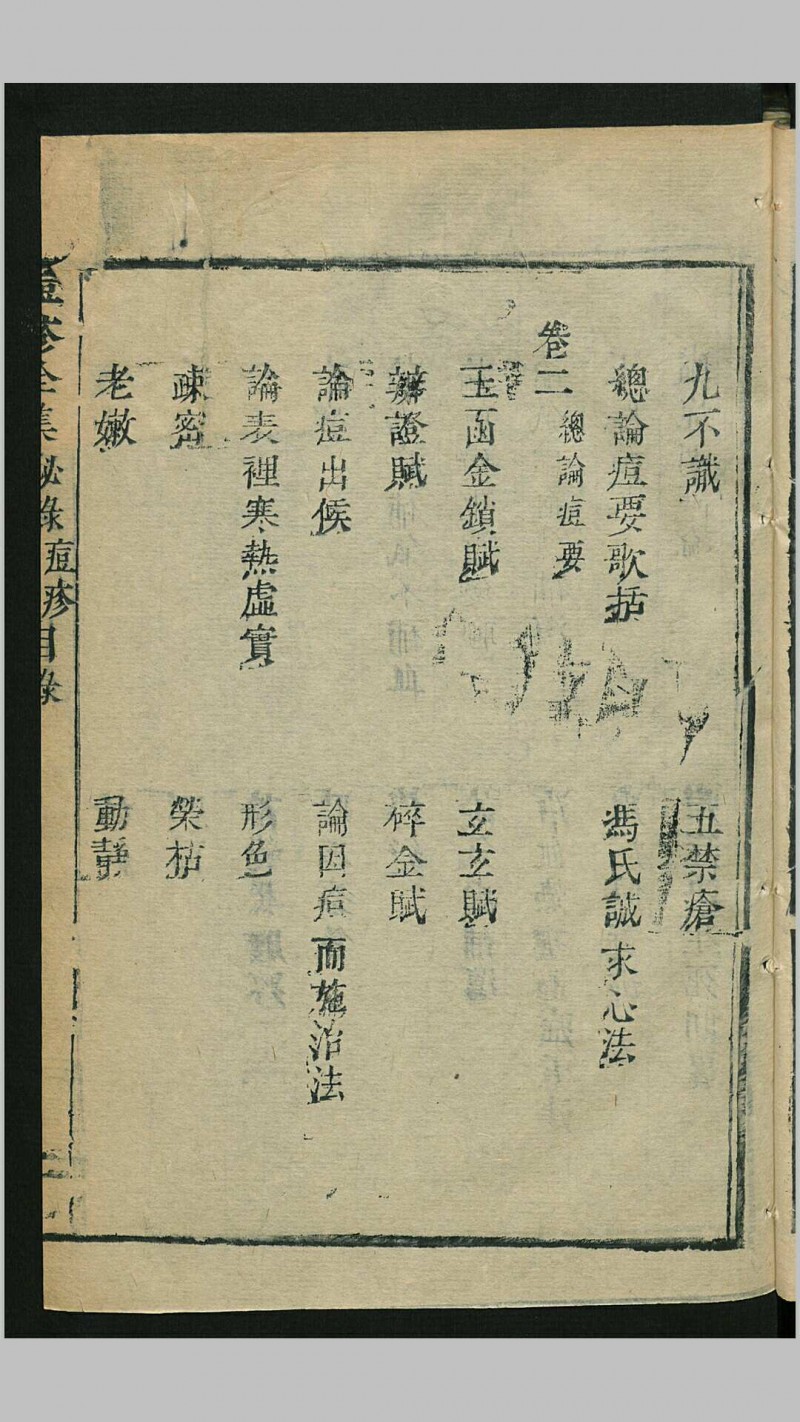 九不識　五禁瘡
總論痘要歌括　馮氏誠求心法
卷二　總論痘要
玉函金鎖賦　玄玄賦
辨證賦　碎金賦
論痘出候　論因痘而施治法
論表裡寒熱虛實　形色
疎密　榮枯
老嫩　動靜
痘疹全集秘錄痘疹目錄